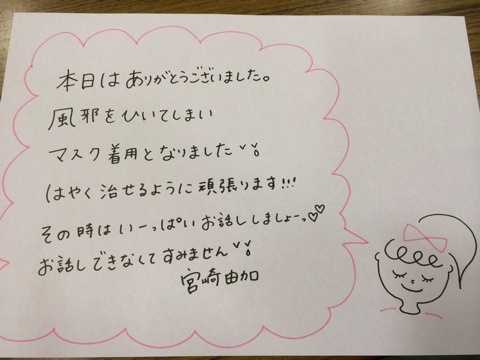 本日はありがとうございました。
風邪をひいてしまい
マスク着用となりました
はやく治せるように頑張ります!!!
その時はいーっぱいお話ししましょー。♡♡
お話しできなくてすみません
宮崎由加